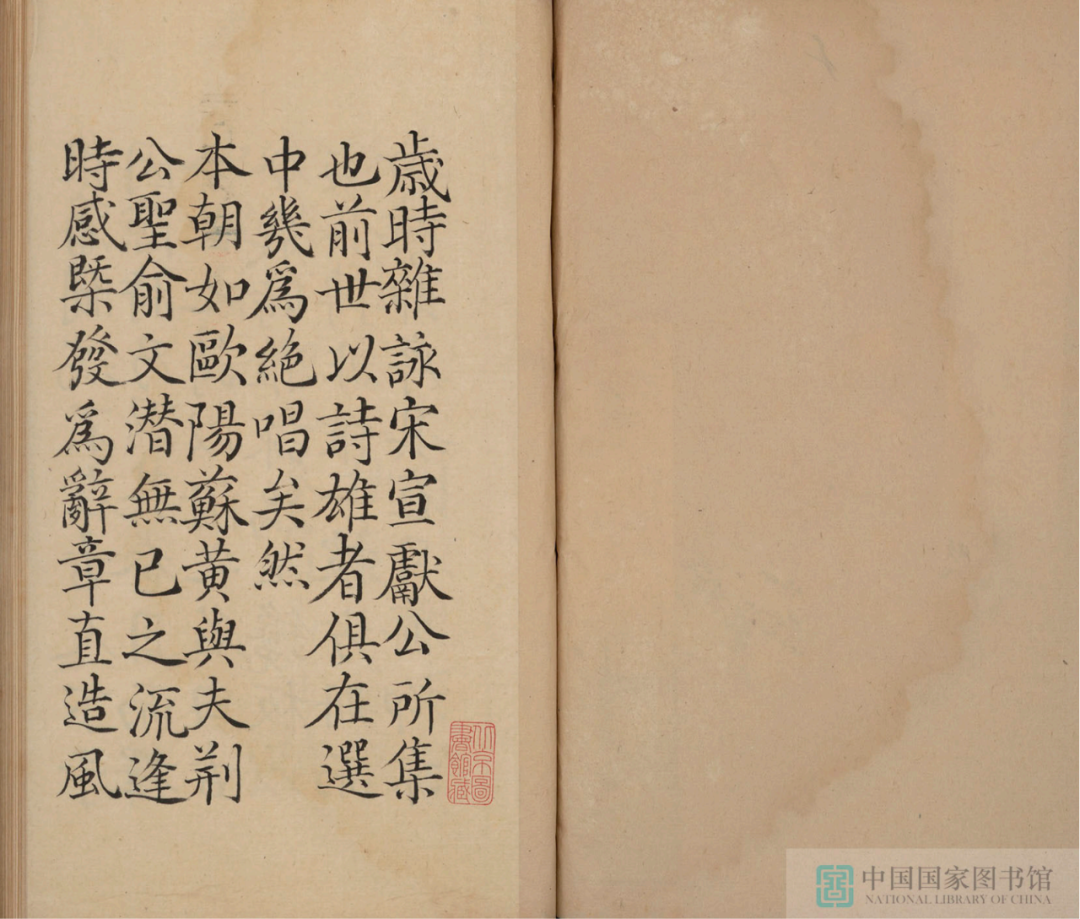 歲時雜詠宋宣獻公所集
也前世以詩雄者俱在選
中幾爲絕唱矣然
本朝如歐陽蘇黄與夫荆
公聖俞文潛無已之流逢
時感槩發爲辭章直造風
北京圖
書館藏
中国国家图书馆
NATIONAL LIBRARY OF CHINA